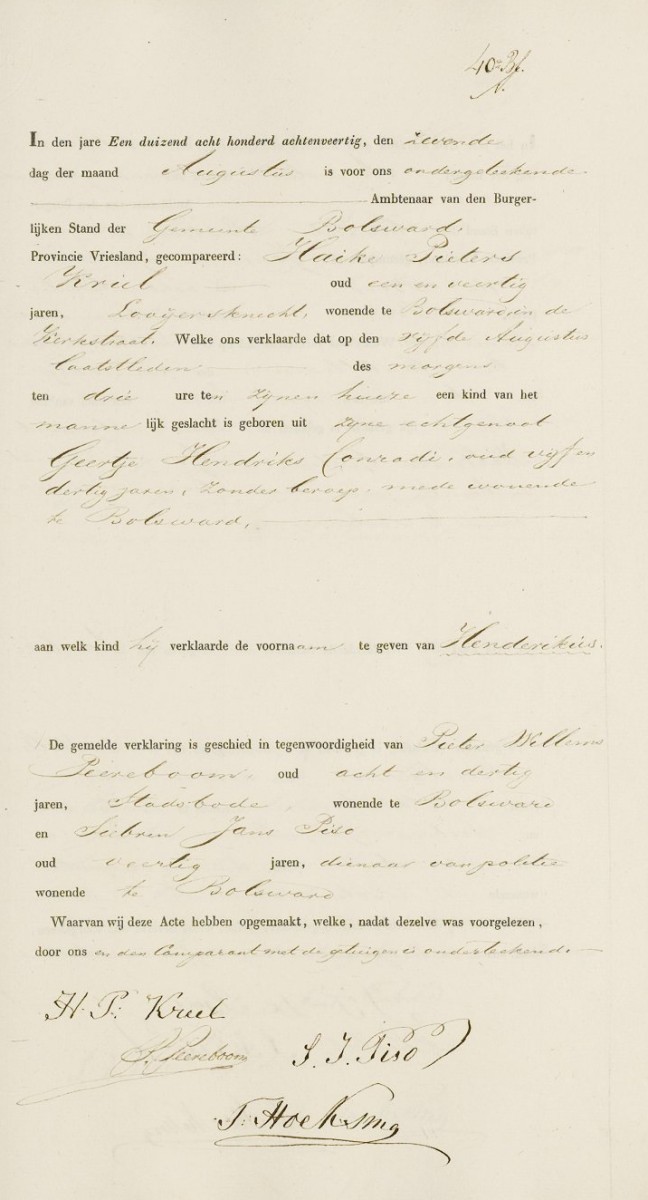 40e Bf.
N.
In den jare Een duizend acht honderd achtenveertig, den zevende
dag der maand Augustus is voor ons ondergeteekende
Ambtenaar van den Burger-
lijken Stand der Gemeente Bolsward,
Provincie Vriesland, gecompareerd: Haike Pieters
Kriel oud een en veertig
jaren, Looyersknecht, wonende te Bolsward in de
Kerkstraat. Welke ons verklaarde dat op den vijfde Augustus
laatstleden des morgens
ten drie ure ten zijnen huize een kind van het
mannelijk geslacht is geboren uit zyne echtgenoot
Geertje Hendriks Conradi, oud vijf en
dertig jaren, zonder beroep, mede wonende
te Bolsward,
aan welk kind hij verklaarde de voornaam te geven van Henderikus.
De gemelde verklaring is geschied in tegenwoordigheid van Pieter Willems
Peereboom, oud acht en dertig
jaren, Stadsbode, wonende te Bolsward
en Siebren Jans Piso
oud veertig jaren, dienaar van politie
wonende te Bolsward
Waarvan wij deze Acte hebben opgemaakt, welke, nadat dezelve was voorgelezen,
door ons en den Comparant met de getuigen is onderteekend.
H. P. Kriel
P. Peereboom S. J. Piso
T. Hoeksma